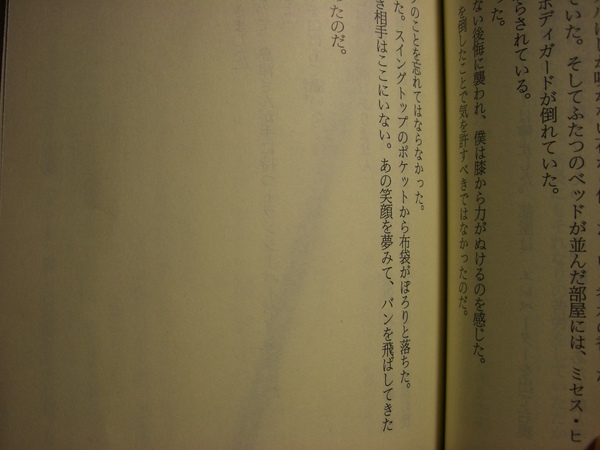 ていた。そしてふたつのベッドが並んだ部屋には、ミセス・ヒ
ボディガードが倒れていた。
らされている。
った。
ない後悔に襲われ、僕は膝から力がぬけるのを感じた。
を倒したことで気を許すべきではなかったのだ。
のことを忘れてはならなかった。
た。スイングトップのポケットから布袋がぽろりと落ちた。
き相手はここにいない。あの笑顔を夢みて、バンを飛ばしてきた
ったのだ。